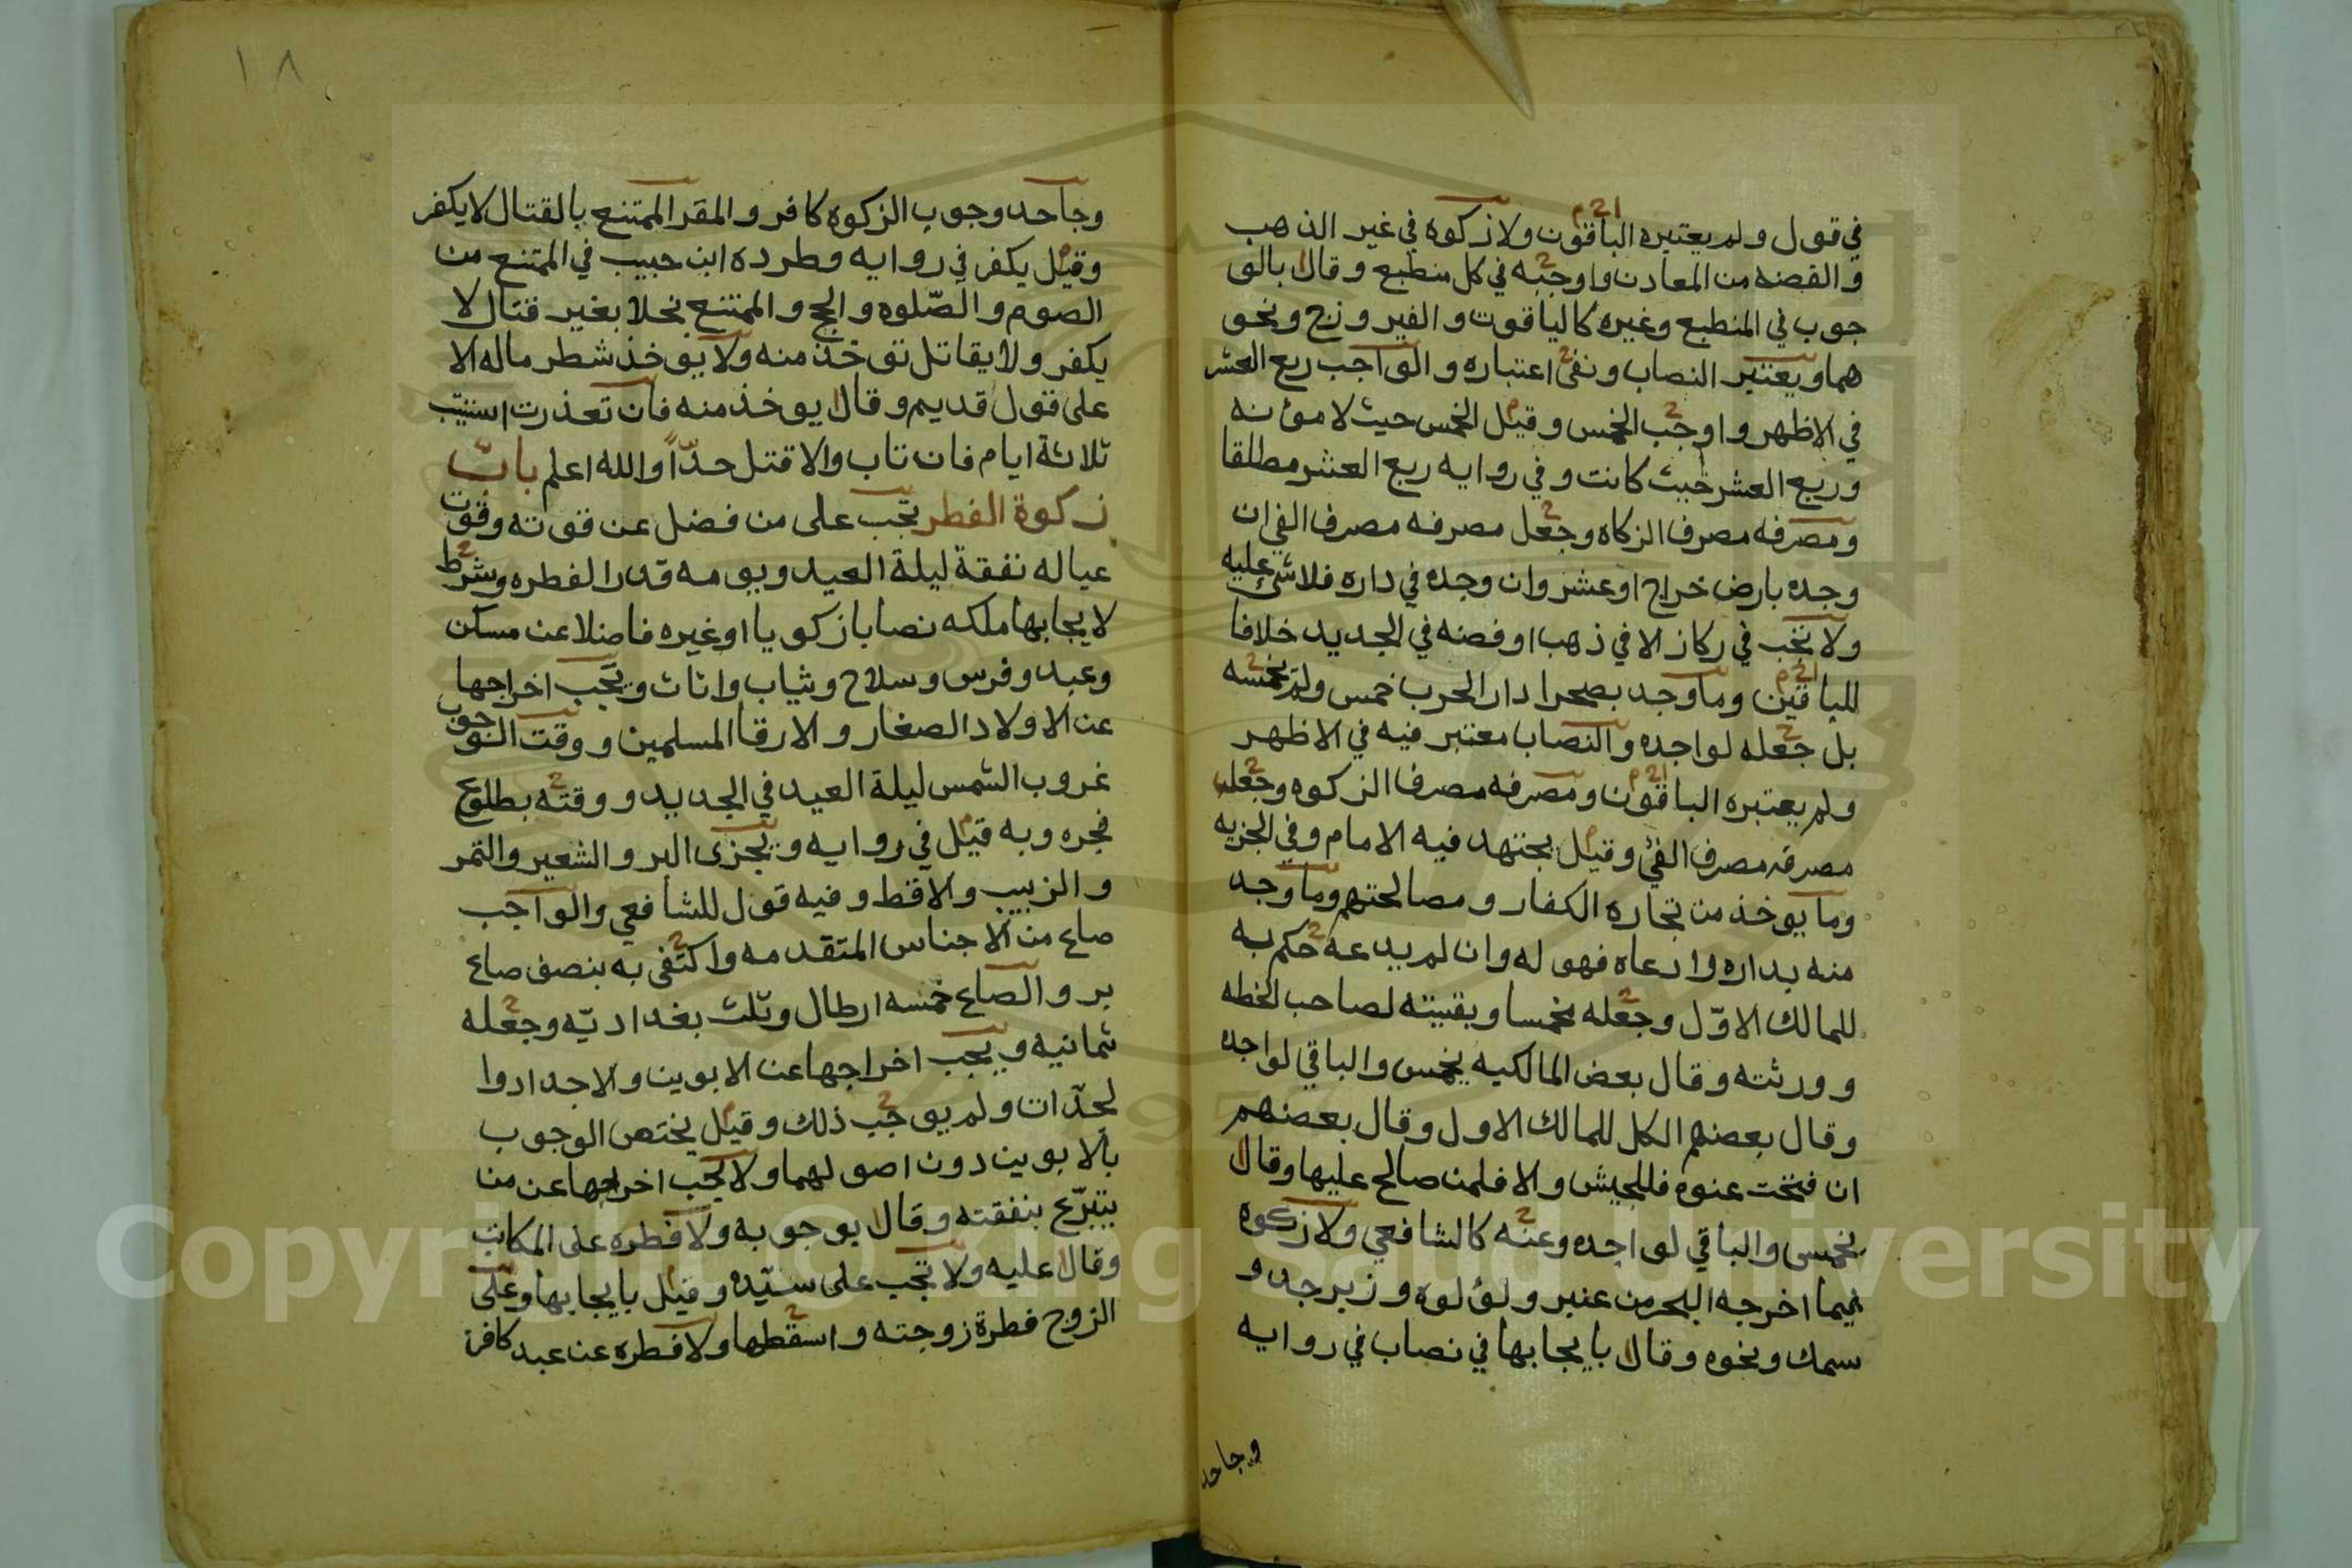 في قول ولم يعتبره الباقون ولا زكوة في غير الذهب
والفضه من المعادن واوجبه في كل منطبع وقال بالو
جوب في المنطبع وغيره كالياقوت والفيروزج ونحو
هما ويعتبر النصاب ونفى اعتباره والواجب ربع العشر
في الاظهر واوجب الخمس وقيل الخمس حيث لا مؤنه
وربع العشر حيث كانت وفي روايه ربع العشر مطلقا
ومصرفه مصرف الزكاه وجعل مصرفه مصرف الفي ان
وجده بارض خراج او عشر وان وجده في داره فلا شئ عليه
ولا تجب في ركاز الا في ذهب او فضه في الجديد خلافا
للباقين وما وجد بصحرا دار الحرب خمس ولم يخمسه
بل جعله لواجده والنصاب معتبر فيه في الاظهر
ولم يعتبره الباقون ومصرفه مصرف الزكوه وجعل
مصرفه مصرف الفئ وقيل يجتهد فيه الامام وفي الجزيه
وما يوخذ من تجاره الكفار ومصالحتهم وما وجد
منه بداره وادعاه فهو له وان لم يدعه حكم به
للمالك الاوّل وجعله مخمسا وبقيته لصاحب الخطه
وورثته وقال بعض المالكيه يخمس والباقي لواجده
وقال بعضهم الكل للمالك الاول وقال بعضهم
ان فتحت عنوه فللجيش والا فلمن صالح عليها وقال
يخمس والباقي لواجده وعنه كالشافعي ولا زكوه
فيما اخرجه البحر من عنبر ولؤلوه وزبرجد و
سمك ونحوه وقال بايجابها في نصاب في روايه
وجاحد
١٨
وجاحد وجوب الزكوه كافر والمقر الممتنع بالقتال لا يكفر
وقيل يكفر في روايه وطرده ابن حبيب في الممتنع من
الصوم والصّلوه والحج والممتنع بخلا بغير قتال لا
يكفر ولا يقاتل توخذ منه ولا يوخذ شطر ماله الا
على قول قديم وقال يوخذ منه فان تعذرت استتيب
ثلاثة ايام فان تاب والا قتل حدّاً والله اعلم باب
زكوة الفطر تجب على من فضل عن قوته وقوت
عياله نفقة ليلة العيد ويومه قدر الفطره وشرط
لايجابها ملكه نصابا زكويا او غيره فاضلا عن مسكن
وعبد وفرس وسلاح وثياب واثاث ويجب اخراجها
عن الاولاد الصغار والارقا المسلمين ووقت الوجوب
غروب الشمس ليلة العيد في الجديد ووقته بطلوع
فجره وبه قيل في روايه ويجزى البر والشعير والتمر
والزبيب والاقط وفيه قول للشافعي والواجب
صاع من الاجناس المتقدمه واكتفى به بنصف صاع
بر والصاع خمسه ارطال وثلث بغداديّه وجعله
ثمانيه ويجب اخراجها عن الابوين والاجداد وا
لجدّات ولم يوجب ذلك وقيل يختص الوجوب
بالابوين دون اصولهما ولا يجب اخراجها عن من
يتبرّع بنفقته وقال بوجوبه ولا فطره على المكاتب
وقال عليه ولا تجب على سيّده وقيل بايجابها وعلى
الزوج فطرة زوجته واسقطها ولا فطره عن عبد كافر
Copyright © King Saud University